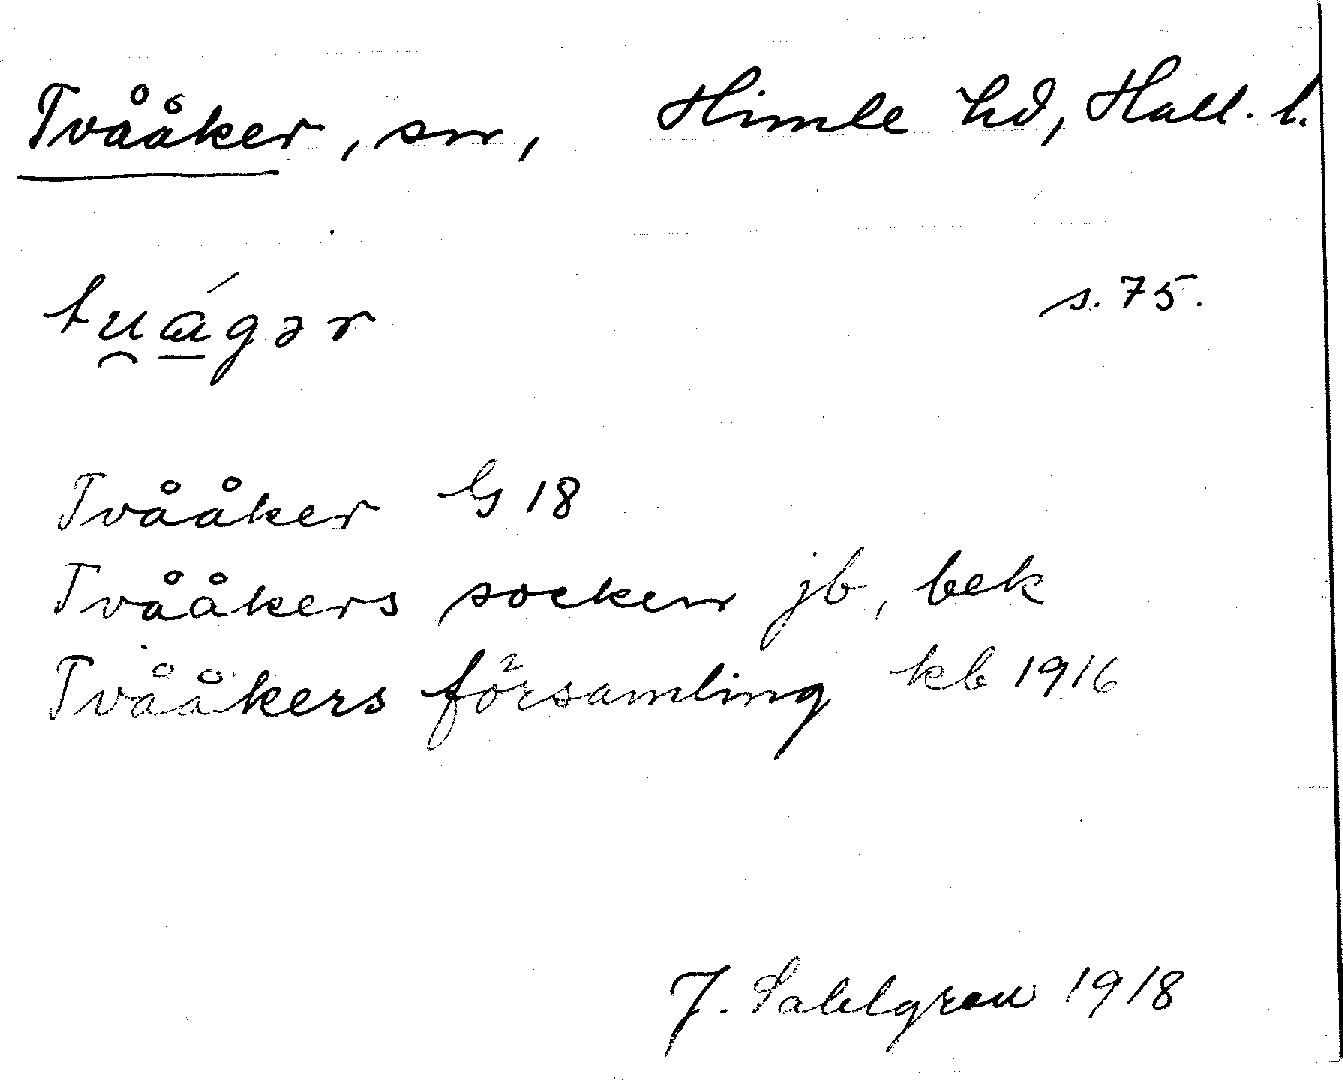 Tvååker, sn, Himle hd, Hall. l.
tu̯á̲gər s. 75.
Tvååker G 18
Tvååkers socken jb, bek
Tvååkers församling kb 1916
J. Sahlgren 1918